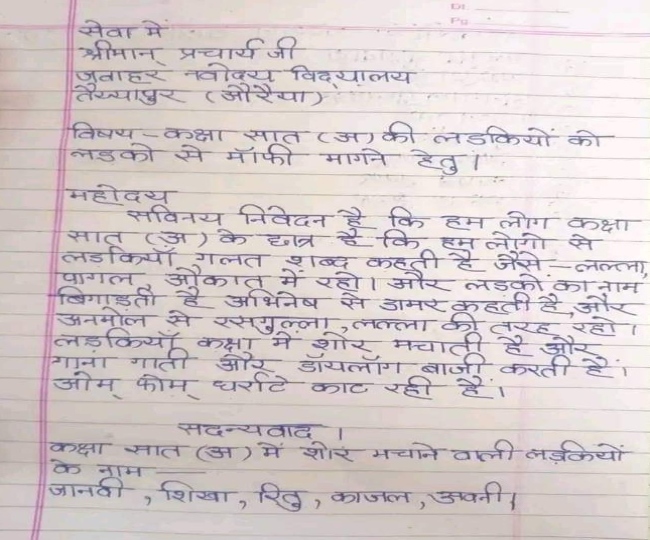 सेवा में
श्रीमान् प्रचार्य जी
जवाहर नवोदय विद्यालय
तैय्यापुर (औरैया)
विषय - कक्षा सात (अ) की लडकियों को
लडको से मॉफी मागने हेतु।
महोदय
सविनय निवेदन है कि हम लोग कक्षा
सात (अ) के छात्र है कि हम लोगो से
लडकियाँ गलत शब्द कहती है जैसे - लल्ला,
पागल, औकात में रहो। और लडको का नाम
बिगाडती है अभिनेष से डामर कहती है, और
अनमोल से रसगुल्ला, लल्ला की तरह रहो।
लडकियाँ कक्षा में शोर मचाती है और
गाना गाती और डॉयलॉग बाजी करती है।
ओम् फोम् धर्राटे काट रही है।
सदन्यवाद।
कक्षा सात (अ) में शोर मचाने वाली लड़कियों
के नाम —
जानवी, शिखा, रितु, काजल, अवनी,